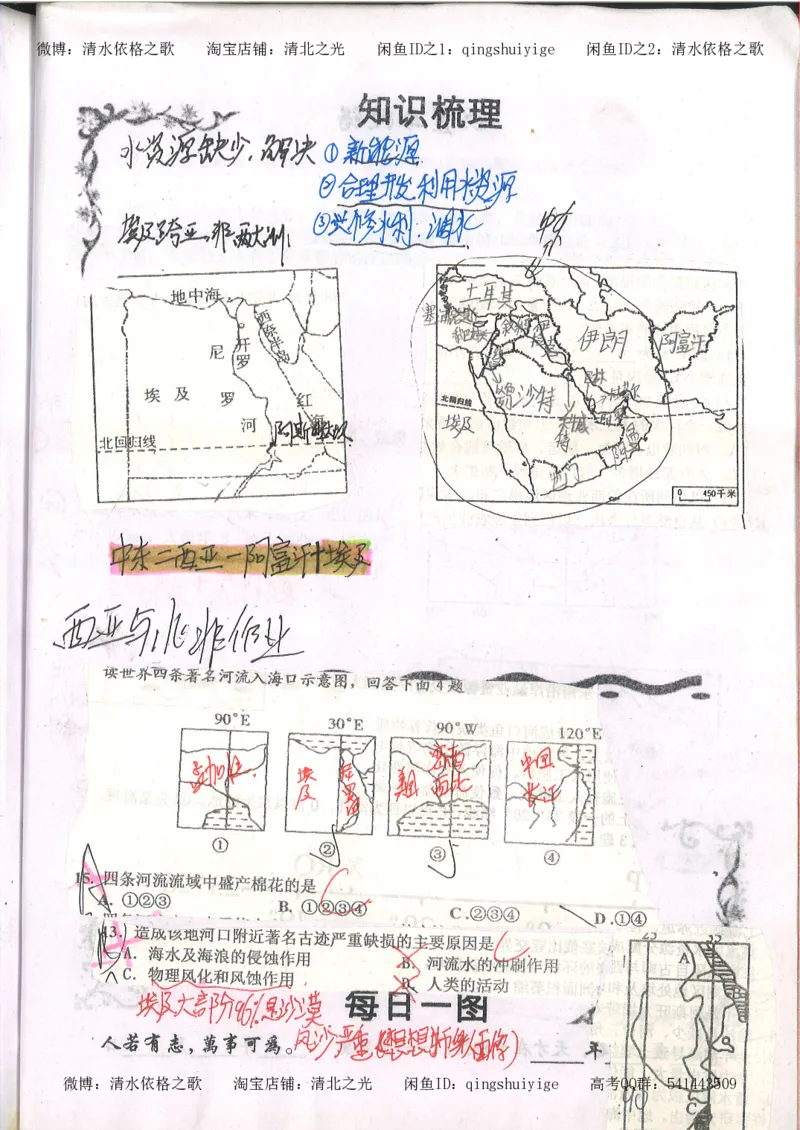 微博：清水依格之歌 淘宝店铺：清北之光 闲鱼ID之1：qingshuiyige 闲鱼ID之2：清水依格之歌
知识梳理
水资源缺少，解决 ①新能源
②合理开发利用水资源
③兴修水利：调水
埃及跨亚、非两大洲
地中海
西奈半岛
开罗
尼
罗
河
埃及
红
海
北回归线
土耳其
塞浦路斯
伊朗
阿富汗
沙特
北回归线
埃及
0 450千米
中东=西亚-阿富汗+埃及
西亚与北非作业
读世界四条著名河流入海口示意图，回答下面4题
90°E 30°E 90°W 120°E
孟加拉
埃及
中国
长江
① ② ③ ④
15. 四条河流流域中盛产棉花的是
A. ①②③ B. ①②③④ C.②③④ D.①④
43. 造成该地河口附近著名古迹严重缺损的主要原因是
A. 海水及海浪的侵蚀作用 B. 河流水的冲刷作用
C. 物理风化和风蚀作用 D. 人类的活动
埃及大部分96%是沙漠
每日一图
风沙严重
人若有志，萬事可為。
年
A
C
微博：清水依格之歌 淘宝店铺：清北之光 闲鱼ID：qingshuiyige 高考QQ群：541443909